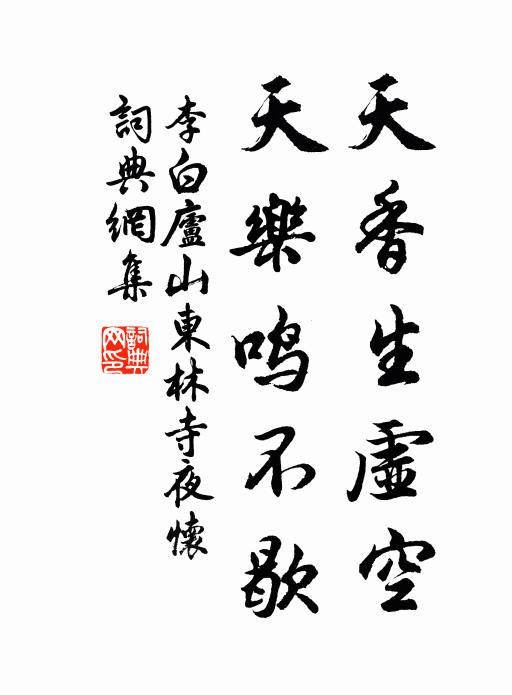 天香生虛空
天樂鳴不歇
李白廬山東林寺夜懷
詞典網集
詞典网印